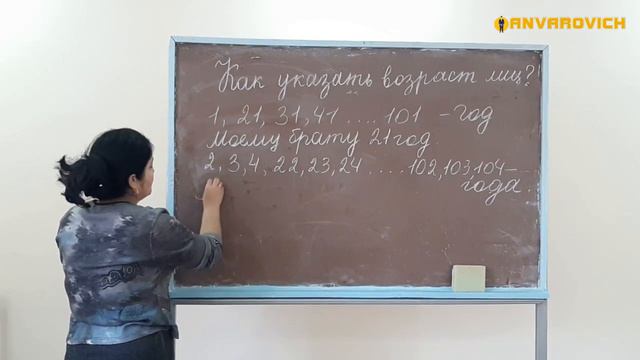 ANVAROVICH
Как указать возраст лиц?
1, 21, 31, 41 .... 101 - год
Моему брату 21 год.
2, 3, 4, 22, 23, 24 .... 102, 103, 104 -
года.